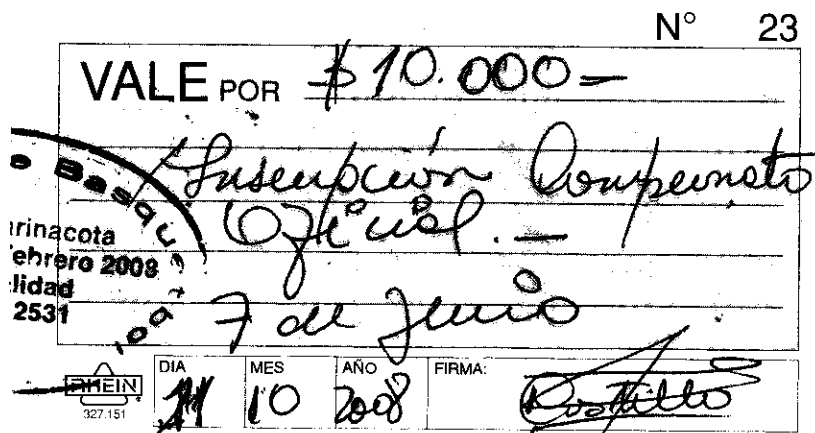 N° 23
VALE POR $10.000=
Inscripción Campeonato
Oficial. —
7 de Junio
o Basq
rinacota
ebrero 2008
lidad
2531
RHEIN
327.151
DIA MES AÑO FIRMA:
11 10 2008